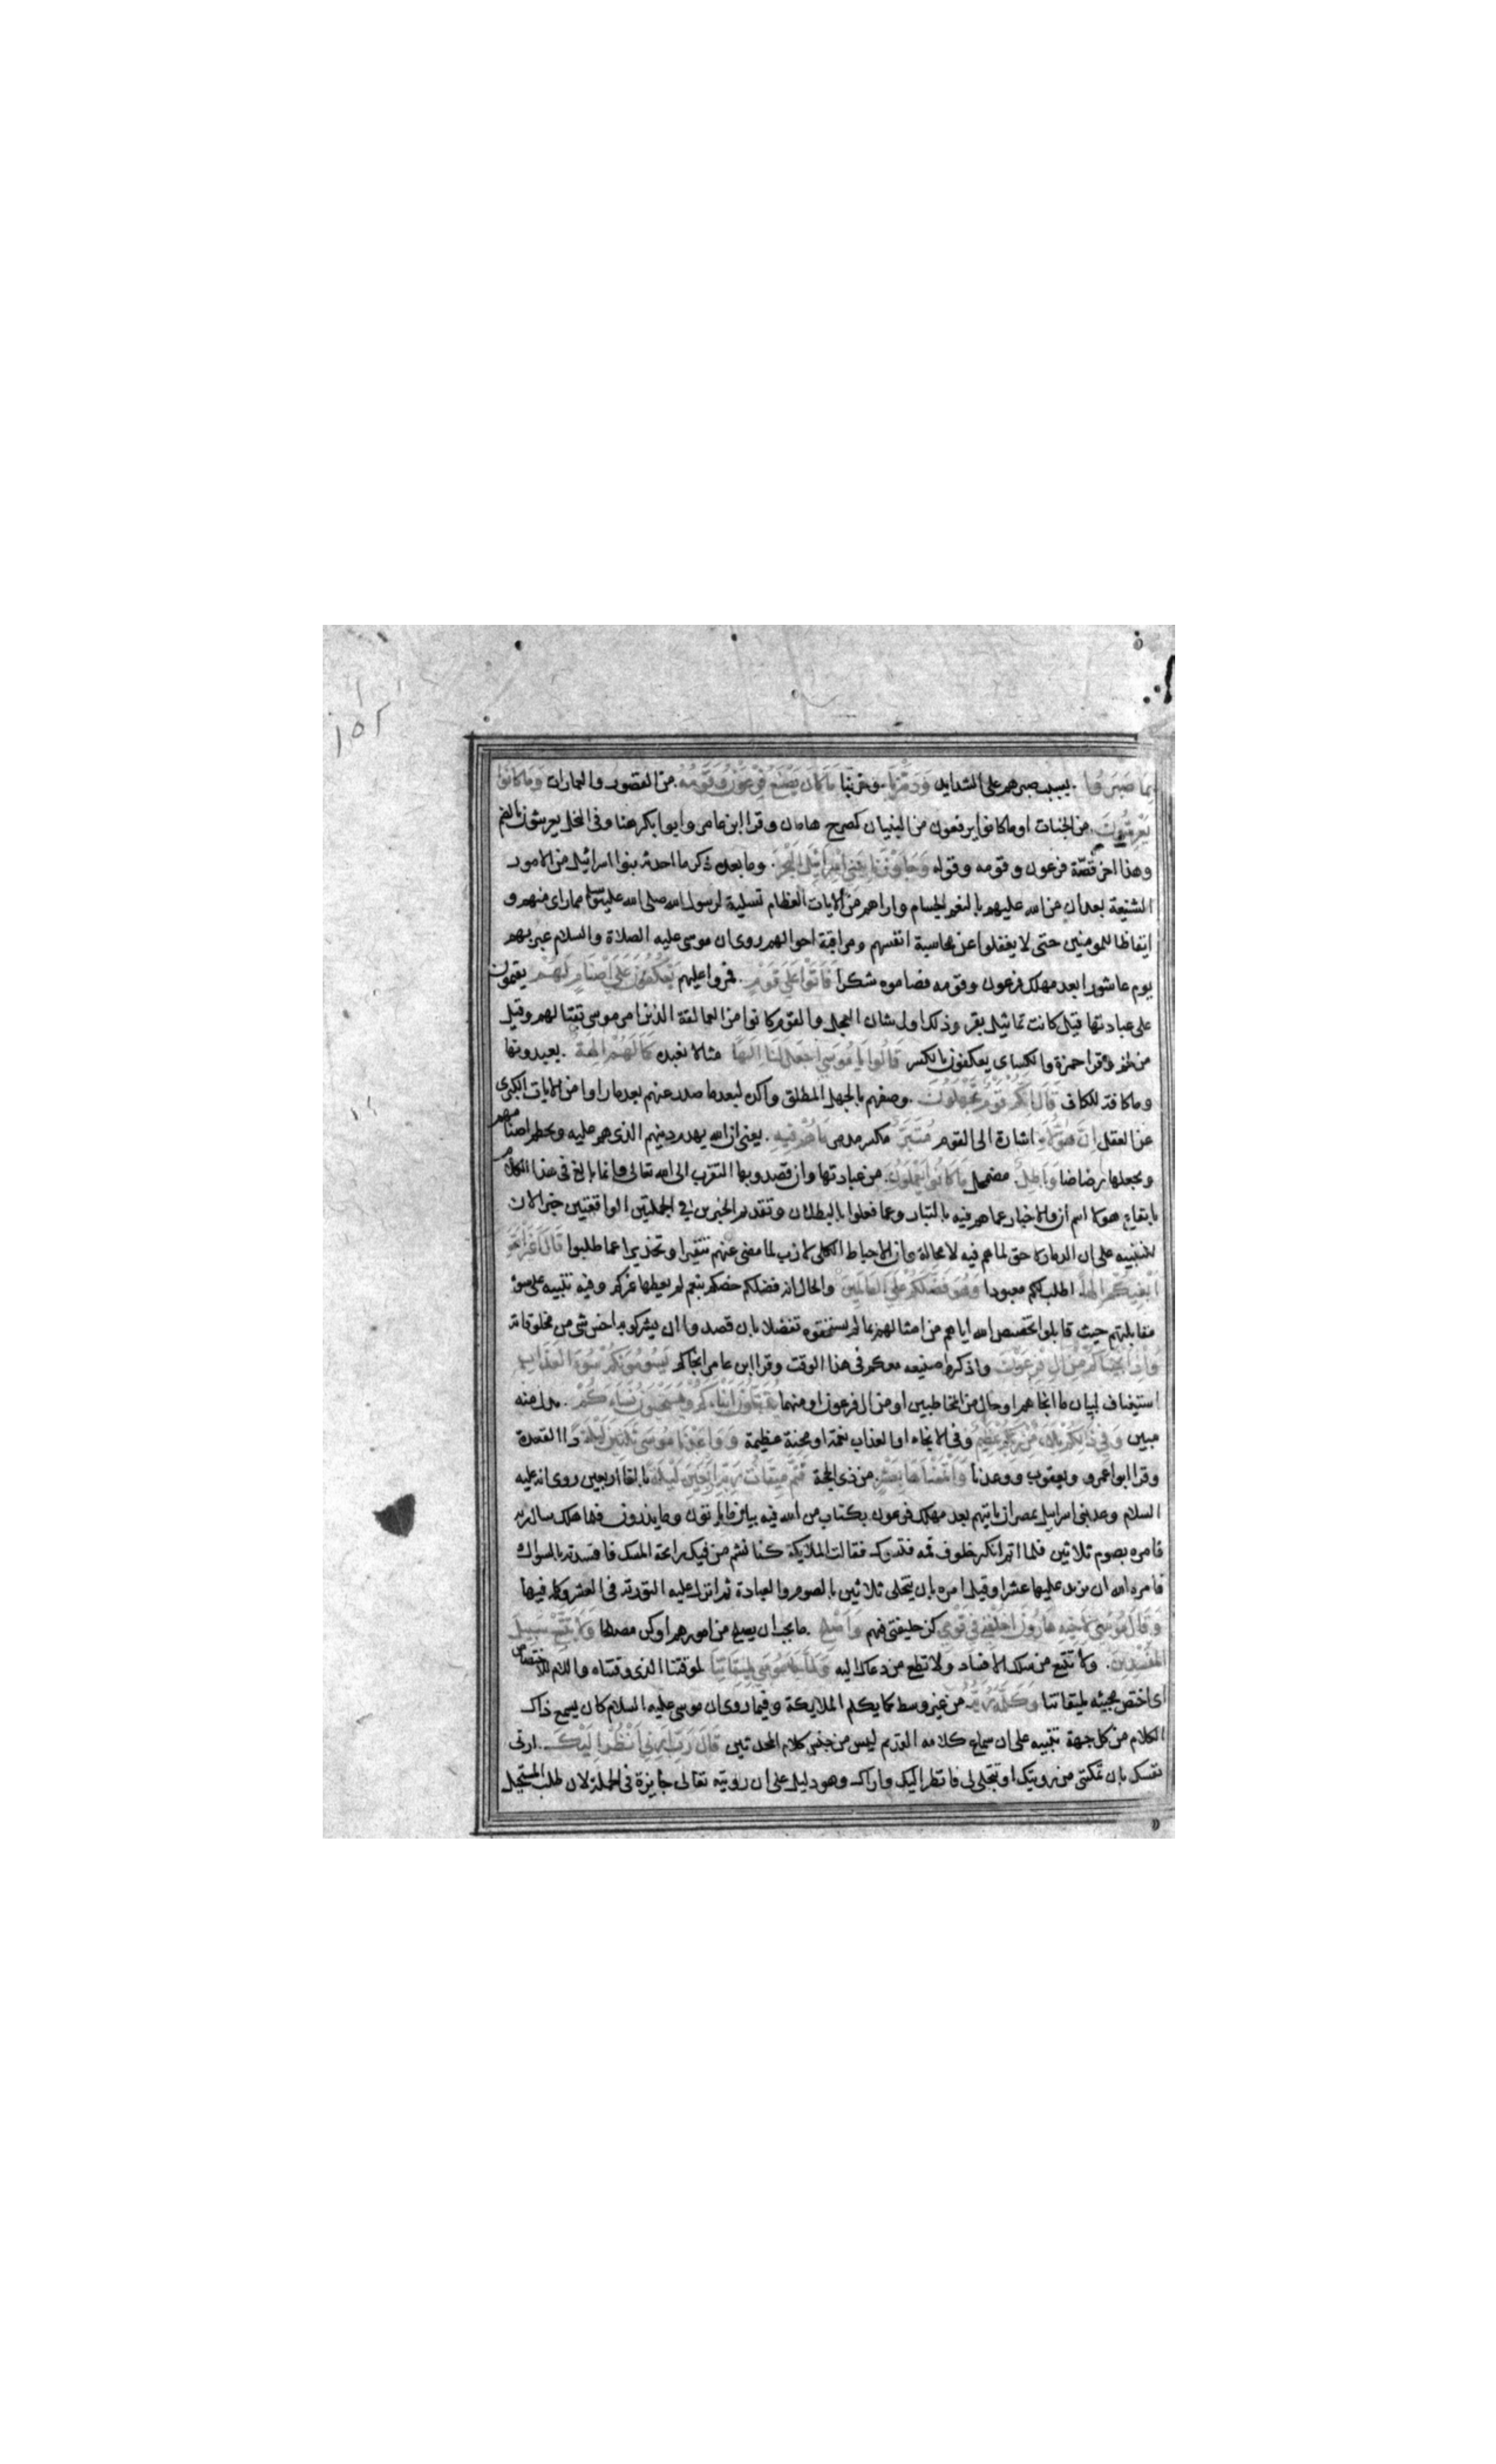 ١٥٢
بِمَا صَبَرُوا . بسبب صبرهم على الشدايد وَدَمَّرْنَا وخربنا مَا كَانَ يَصْنَعُ فِرْعَوْنُ وَقَوْمُهُ من القصور والعمارات وَمَا كَانُوا
يَعْرِشُونَ من الجنات او ما كانوا يرفعون من البنيان كصرح هامان وقرا ابن عامر وابوا بكر هنا وفى النحل يعرشون بالضم
وهذا اخر قصّة فرعون وقومه وقوله وَجَاوَزْنَا بِبَنِي اِسْرَائِيلَ الْبَحْرَ . وما بعده ذكر ما احدثه بنوا اسرائيل من الامور
الشنيعة بعد ان من الله عليهم بالنعم الجسام واراهم من الايات العظام تسلية لرسول الله صلى الله عليه وسلم مما راى منهم و
ايقاظا للمومنين حتى لا يغفلوا عن محاسبة انفسهم ومراقبة احوالهم روى ان موسى عليه الصلاة والسلام عبر بهم
يوم عاشورا بعد مهلك فرعون وقومه فصاموه شكرا فَاَتَوْا عَلَى قَوْمٍ . فمروا عليهم يَعْكُفُونَ عَلَى اَصْنَامٍ لَهُمْ يقيمون
على عبادتها قيل كانت تماثيل بقر وذلك اول شان العجل والقوم كانوا من العمالقة الذين امر موسى بقتالهم وقيل
من لخم وقرا حمزة والكساى يعكفون بالكسر قَالُوا يَا مُوسَى اجْعَلْ لَنَا اِلَهًا مثالا نعبده كَمَا لَهُمْ اٰلِهَةٌ . يعبدونها
وما كافة للكاف قَالَ اِنَّكُمْ قَوْمٌ تَجْهَلُونَ . وصفهم بالجهل المطلق واكده لبعد ما صدر عنهم بعد ما راوا من الايات الكبرى
عن العقل اِنَّ هَؤُلَاءِ اشارة الى القوم مُتَبَّرٌ مكسر مدمر مَا هُمْ فِيهِ . يعنى ان الله يهدم دينهم الذى هم عليه ويحطم اصنامهم
ويجعلها رضاضا وَبَاطِلٌ مضمحل مَا كَانُوا يَعْمَلُونَ . من عبادتها وان قصدوا بها التقرب الى الله تعالى وانما بالغ فى هذا الكلام
بايقاع هولا اسم ان والاخبار عما هم فيه بالتبار وعما فعلوا بالبطلان وتقديم الخبرين فى الجملتين الواقعتين خبر الان
للتنبيه على ان الدمار لاحق لما هم فيه لا محالة وان الاحباط الكلى لازب لما مضى عنهم تنفيرا وتحذيرا عما طلبوا قَالَ اَغَيْرَ اللهِ
اَبْغِيكُمْ اِلَهًا . اطلب لكم معبودا وَهُوَ فَضَّلَكُمْ عَلَى الْعَالَمِينَ والحال انه فضلكم خصكم بنعم لم يعطها غيركم وفيه تنبيه على سوء
مقابلتهم حيث قابلوا تخصيص الله اياهم من امثالهم بما لم يستحقوه تفضلا بان قصدوا ان يشركوا به اخس شى من مخلوقاته
وَاِذْ اَنْجَيْنَاكُمْ مِنْ اٰلِ فِرْعَوْنَ واذكروا صنيعه معكم فى هذا الوقت وقرا ابن عامر انجاكم يَسُومُونَكُمْ سُوءَ الْعَذَابِ
استيناف لبيان ما انجاهم او حال من المخاطبين او من ال فرعون او منهما يُقَتِّلُونَ اَبْنَاءَكُمْ وَيَسْتَحْيُونَ نِسَاءَكُمْ . بدل منه
مبين وَفِي ذَلِكُمْ بَلَاءٌ مِنْ رَبِّكُمْ عَظِيمٌ وفى الانجاء او العذاب نعمة او محنة عظيمة وَوَاعَدْنَا مُوسَى ثَلَاثِينَ لَيْلَةً ذا القعدة
وقرا ابوا عمرو ويعقوب ووعدنا وَاَتْمَمْنَاهَا بِعَشْرٍ . من ذى الحجة فَتَمَّ مِيقَاتُ رَبِّهِ اَرْبَعِينَ لَيْلَةً بالغا اربعين روى انه عليه
السلام وعد بنى اسرايل بمصر ان ياتيهم بعد مهلك فرعون بكتاب من الله فيه بيان ما ياتون وما يذرون فلما هلك سال ربه
فامره بصوم ثلاثين فلما اتم انكر خلوف فمه فتسوك فقالت الملايكة كنا نشم من فيك رايحة المسك فافسدته بالسواك
فامره الله ان يزيد عليها عشرا وقيل امره بان يتخلى ثلاثين بالصوم والعبادة ثم انزل عليه التورية فى العشر وكلمه فيها
وَقَالَ مُوسَى لِاَخِيهِ هَارُونَ اخْلُفْنِي فِي قَوْمِي كن خليفتى فيهم وَاَصْلِحْ . ما يجب ان يصلح من امورهم او كن مصلحا وَلَا تَتَّبِعْ سَبِيلَ
الْمُفْسِدِينَ . ولا تتبع من سلك الافساد ولا تطع من دعاك اليه وَلَمَّا جَاءَ مُوسَى لِمِيقَاتِنَا لوقتنا الذى وقتناه واللام للاختصاص
اى اختص مجيئه لميقاتنا وَكَلَّمَهُ رَبُّهُ من غير وسط كما يكلم الملايكة وفيما روى ان موسى عليه السلام كان يسمع ذلك
الكلام من كل جهة تنبيه على ان سماع كلامه القديم ليس من جنس كلام المحدثين قَالَ رَبِّ اَرِنِي اَنْظُرْ اِلَيْكَ . ارنى
نفسك بان تمكنى من رويتك او تتجلى لى فانظر اليك واراك وهو دليل على ان رويته تعالى جايزة فى الجملة لان طلب المستحيل